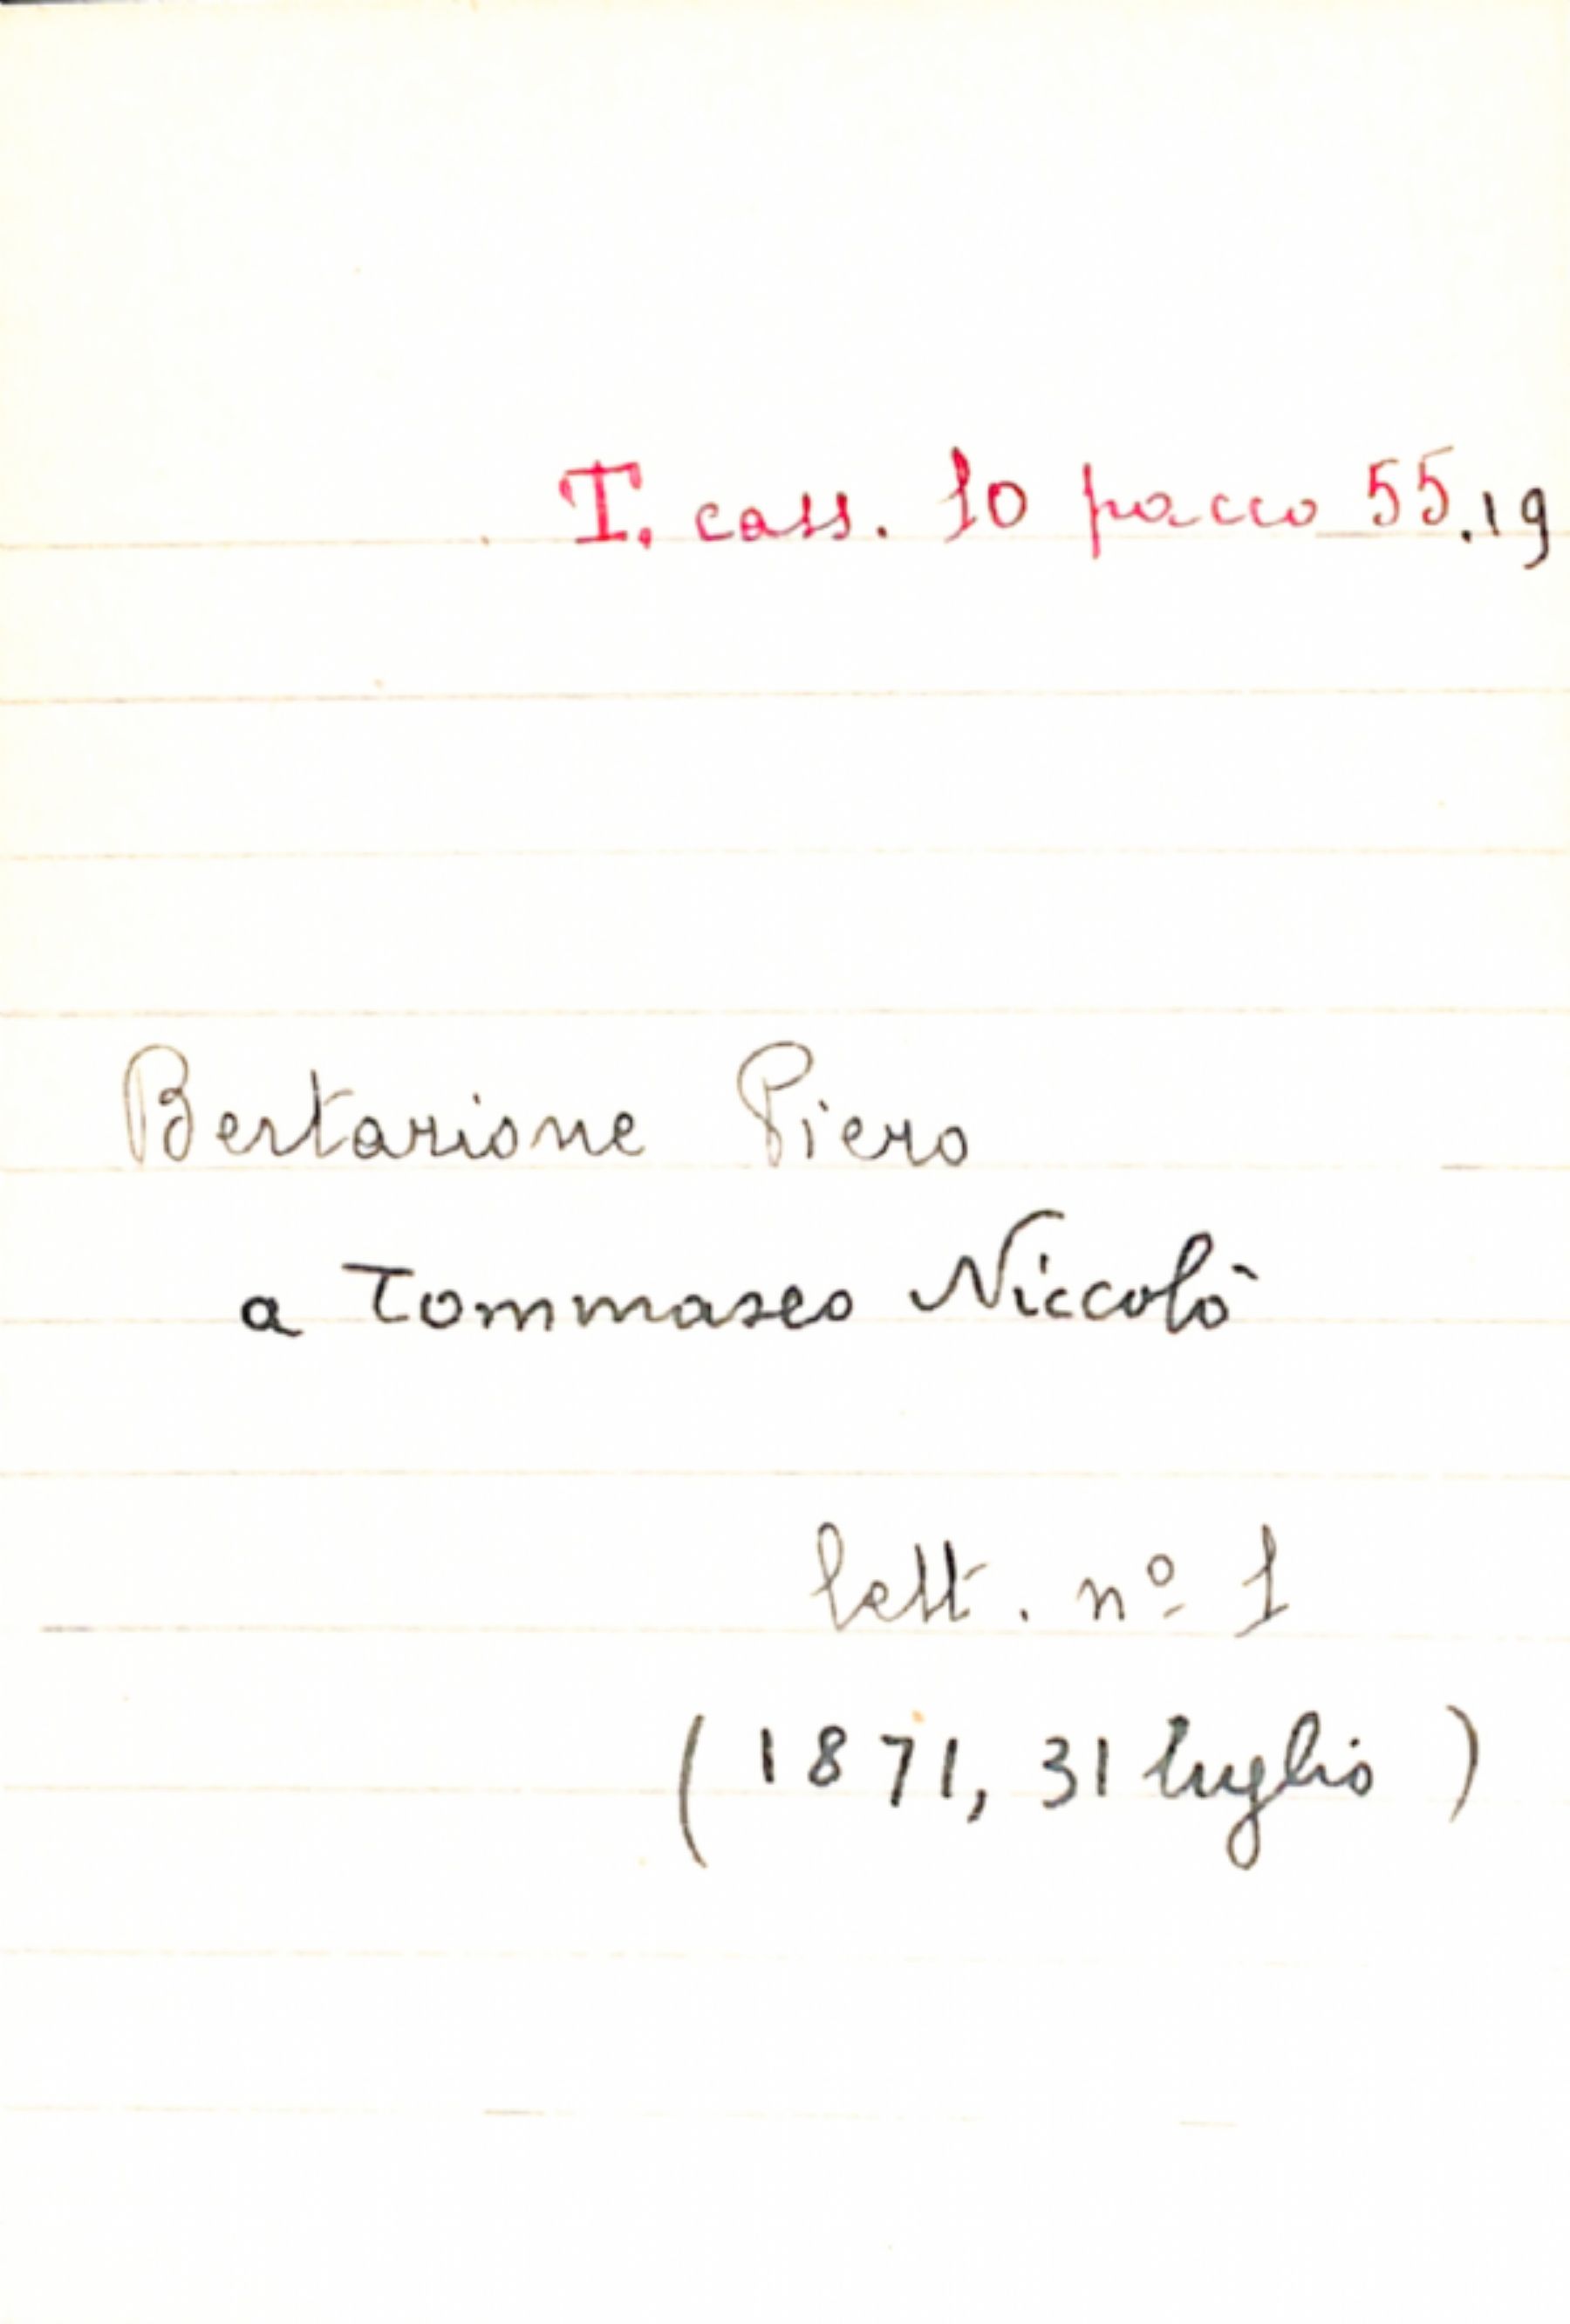 T. cass. 10 pacco 55.19
Bertarione Piero
a Tommaseo Niccolò
lett. nº 1
(1871, 31 luglio)